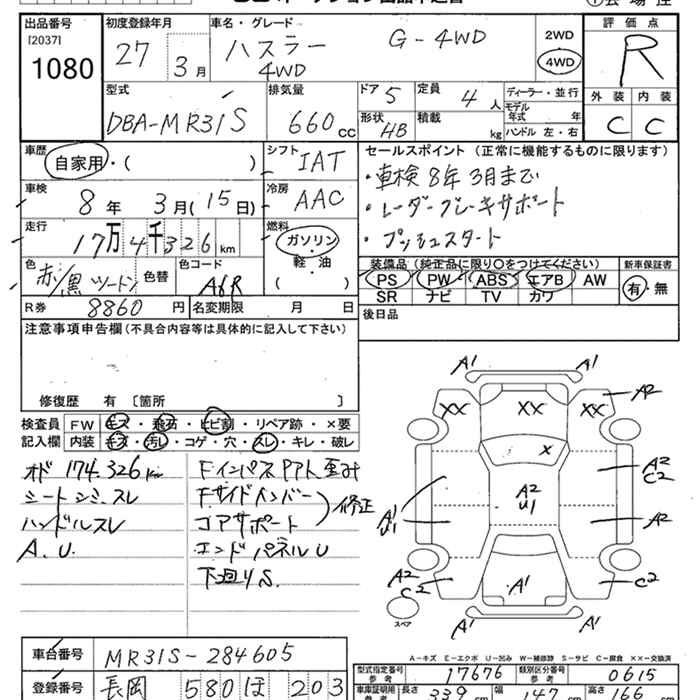 出品番号
[2037]
1080
初度登録年月
27年 3月
車名・グレード
ハスラー G-4WD
4WD
2WD
4WD
評価点
R
外装 内装
C C
型式
DBA-MR31S
排気量
660cc
ドア 5
形状 HB
定員 4人
積載 kg
ディーラー・並行
モデル年式 年
ハンドル 左・右
車歴
自家用・( )
シフト
IAT
車検
8年 3月(15日)
冷房
AAC
走行
17万4千326km
燃料
ガソリン
軽・油
( )
色
赤/黒 ツートン
色替
色コード
A6R
R券 8860円
名変期限 月 日
セールスポイント (正常に機能するものに限ります)
・車検8年3月まで
・レーダーブレーキサポート
・プッシュスタート
装備品 (純正品に限り○をつけてください)
PS PW ABS エアB AW
SR ナビ TV カワ
新車保証書
有・無
後日品
注意事項申告欄 (不具合内容等は具体的に記入して下さい)
修復歴 有 〔箇所 〕
検査員 FW キズ・飛石・ヒビ割・リペア跡・×要
記入欄 内装 キズ・汚レ・コゲ・穴・スレ・キレ・破レ
オド 174.326km
シートシミ、スレ
ハンドルスレ
A.U.
FインパスアPAト歪み
Fサイドメンバー
コアサポート
修正
エンドパネルU
下廻りS.
A1 A1
A2
XX XX XX
X
A2
C2
A2
U1
A1
U1
A2
A2
C2
A1
C2
A1 A1
スペア
A-キズ E-エクボ U-凹み W-補修跡 S-サビ C-腐食 ××-交換済
車台番号 MR31S-284605
登録番号 長岡 580 ほ 203
型式指定番号 参考 17676
類別区分番号 参考 0615
車庫証明用 参考 長さ 339cm 幅 147cm 高さ 166cm